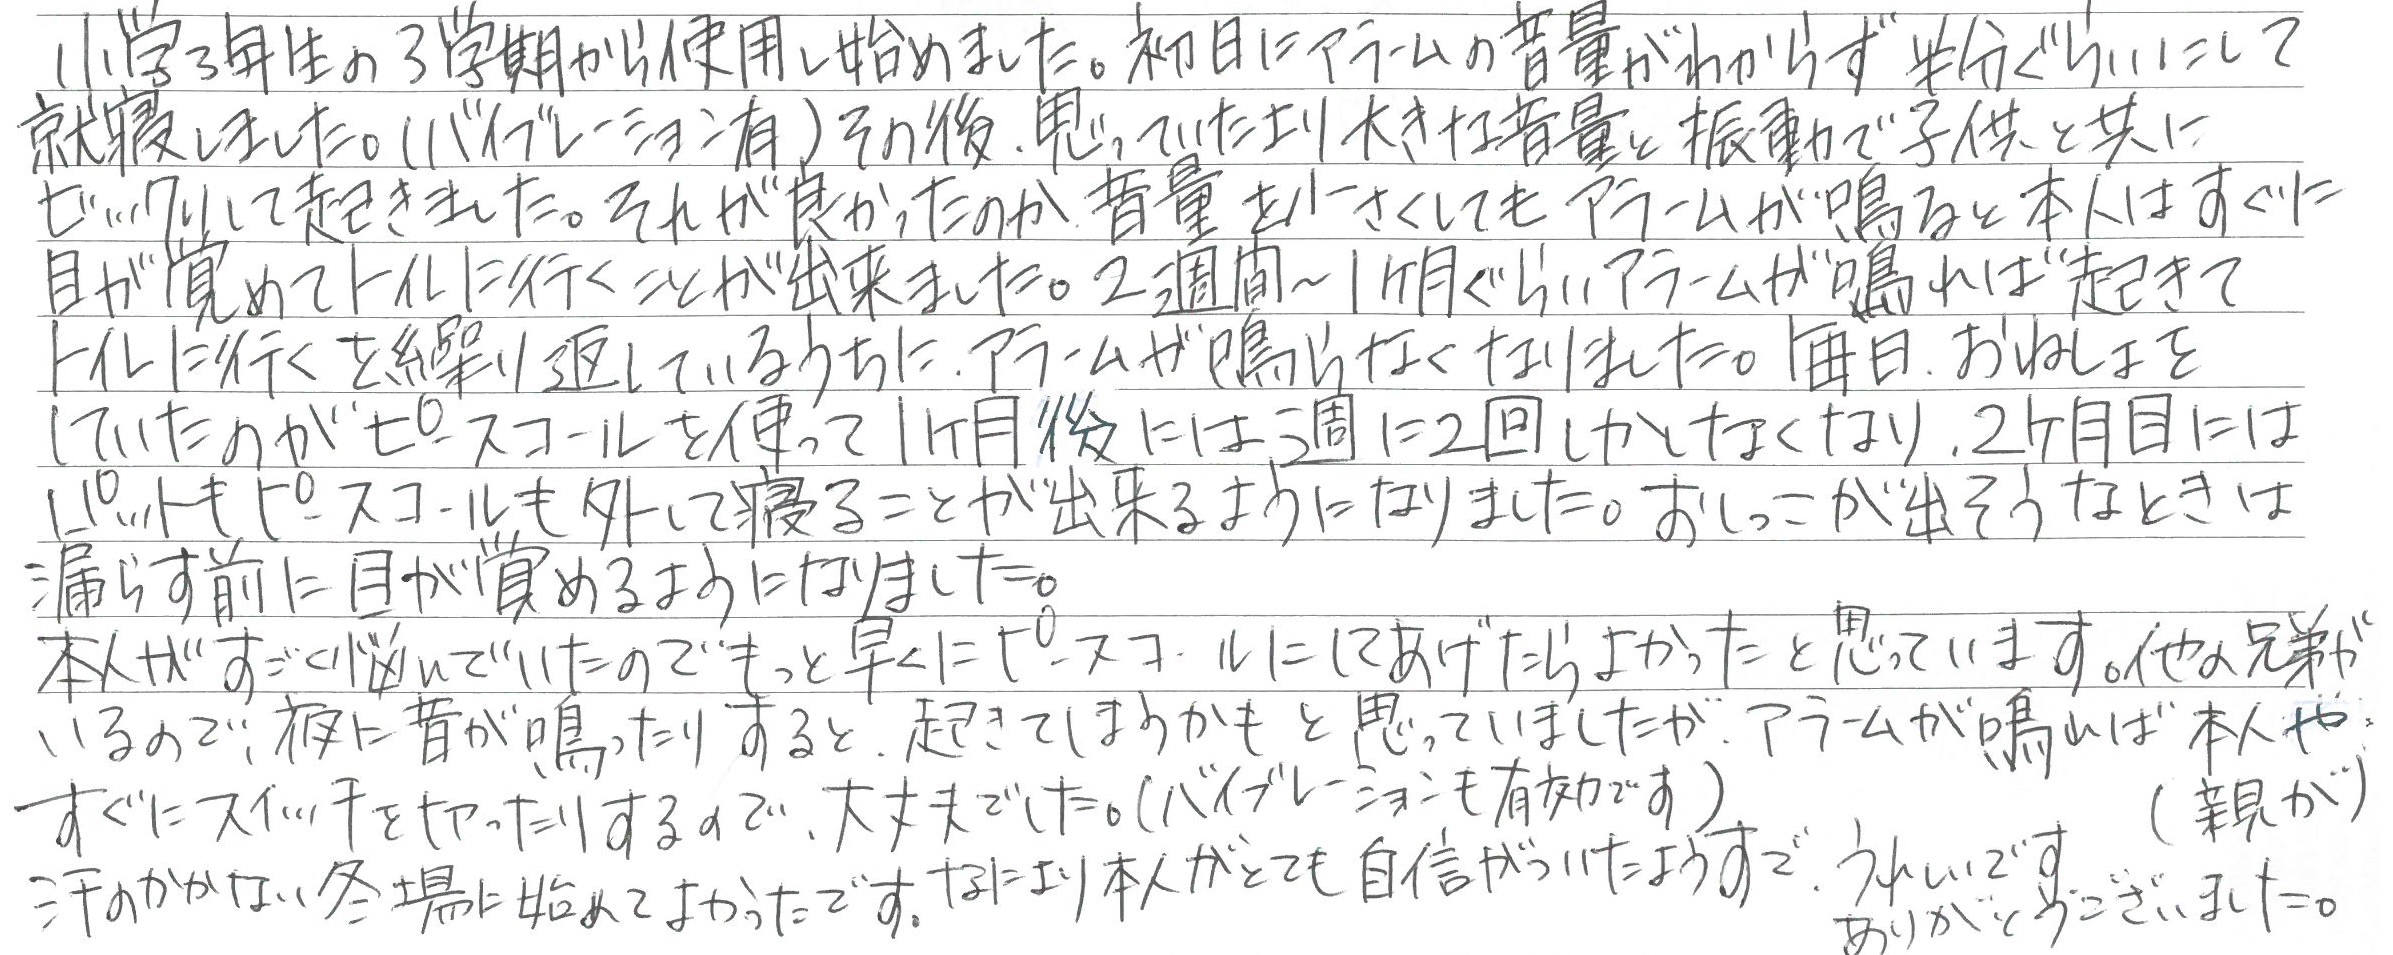 小学3年生の3学期から使用し始めました。初日にアラームの音量がわからず半分ぐらいにして
就寝しました。(バイブレーション有)その後、思っていたより大きな音量と振動で子供と共に
ビックリして起きました。それが良かったのか、音量を小さくしてもアラームが鳴ると本人はすぐに
目が覚めてトイレに行くことが出来ました。2週間～1ヶ月ぐらいアラームが鳴れば起きて
トイレに行くを繰り返しているうちに、アラームが鳴らなくなりました。毎日、おねしょを
していたのがピスコールを使って1ヶ月後には週に2回しかしなくなり、2ヶ月目には
パットもピスコールも外して寝ることが出来るようになりました。おしっこが出そうなときは
漏らす前に目が覚めるようになりました。
本人がすごく悩んでいたのでもっと早くにピスコールにしてあげたらよかったと思っています。他の兄弟が
いるので、夜に音が鳴ったりすると、起きてしまうかもと思っていましたが、アラームが鳴れば本人や
(親が)
すぐにスイッチを切ったりするので、大丈夫でした。(バイブレーションも有効です)
汗のかかない冬場に始めてよかったです。なにより本人がとても自信がついたようすで、うれしいです
ありがとうございました。